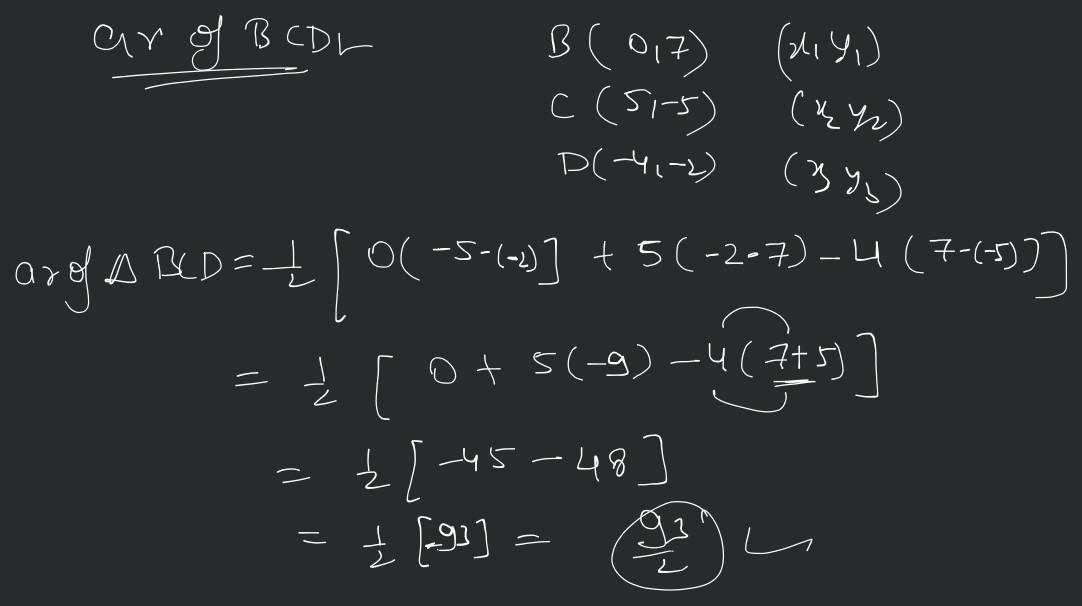 ar of BCDL
B(0,7) (x₁ y₁)
C (5,-5) (x₂ y₂)
D(-4,-2) (x₃ y₃)
ar of Δ BCD = 1/2 [ 0( -5-(-2)] + 5(-2-7) - 4 (7-(-5))]
= 1/2 [ 0 + 5(-9) - 4(7+5)]
= 1/2 [-45 - 48]
= 1/2 [-93] = 93/2